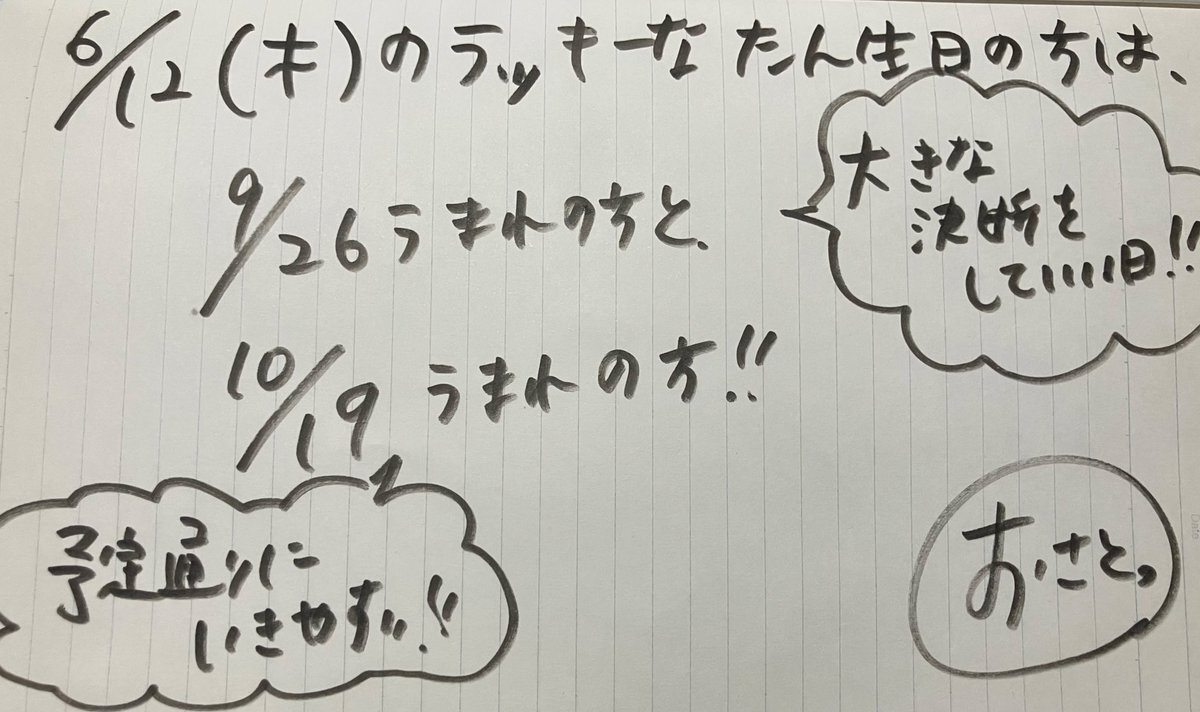 6/12(木)のラッキーなたん生日の方は、
大きな
決断を
していい日!!
9/26うまれの方と、
10/19うまれの方!!
予定通りに
いきやすい!!
おさと。